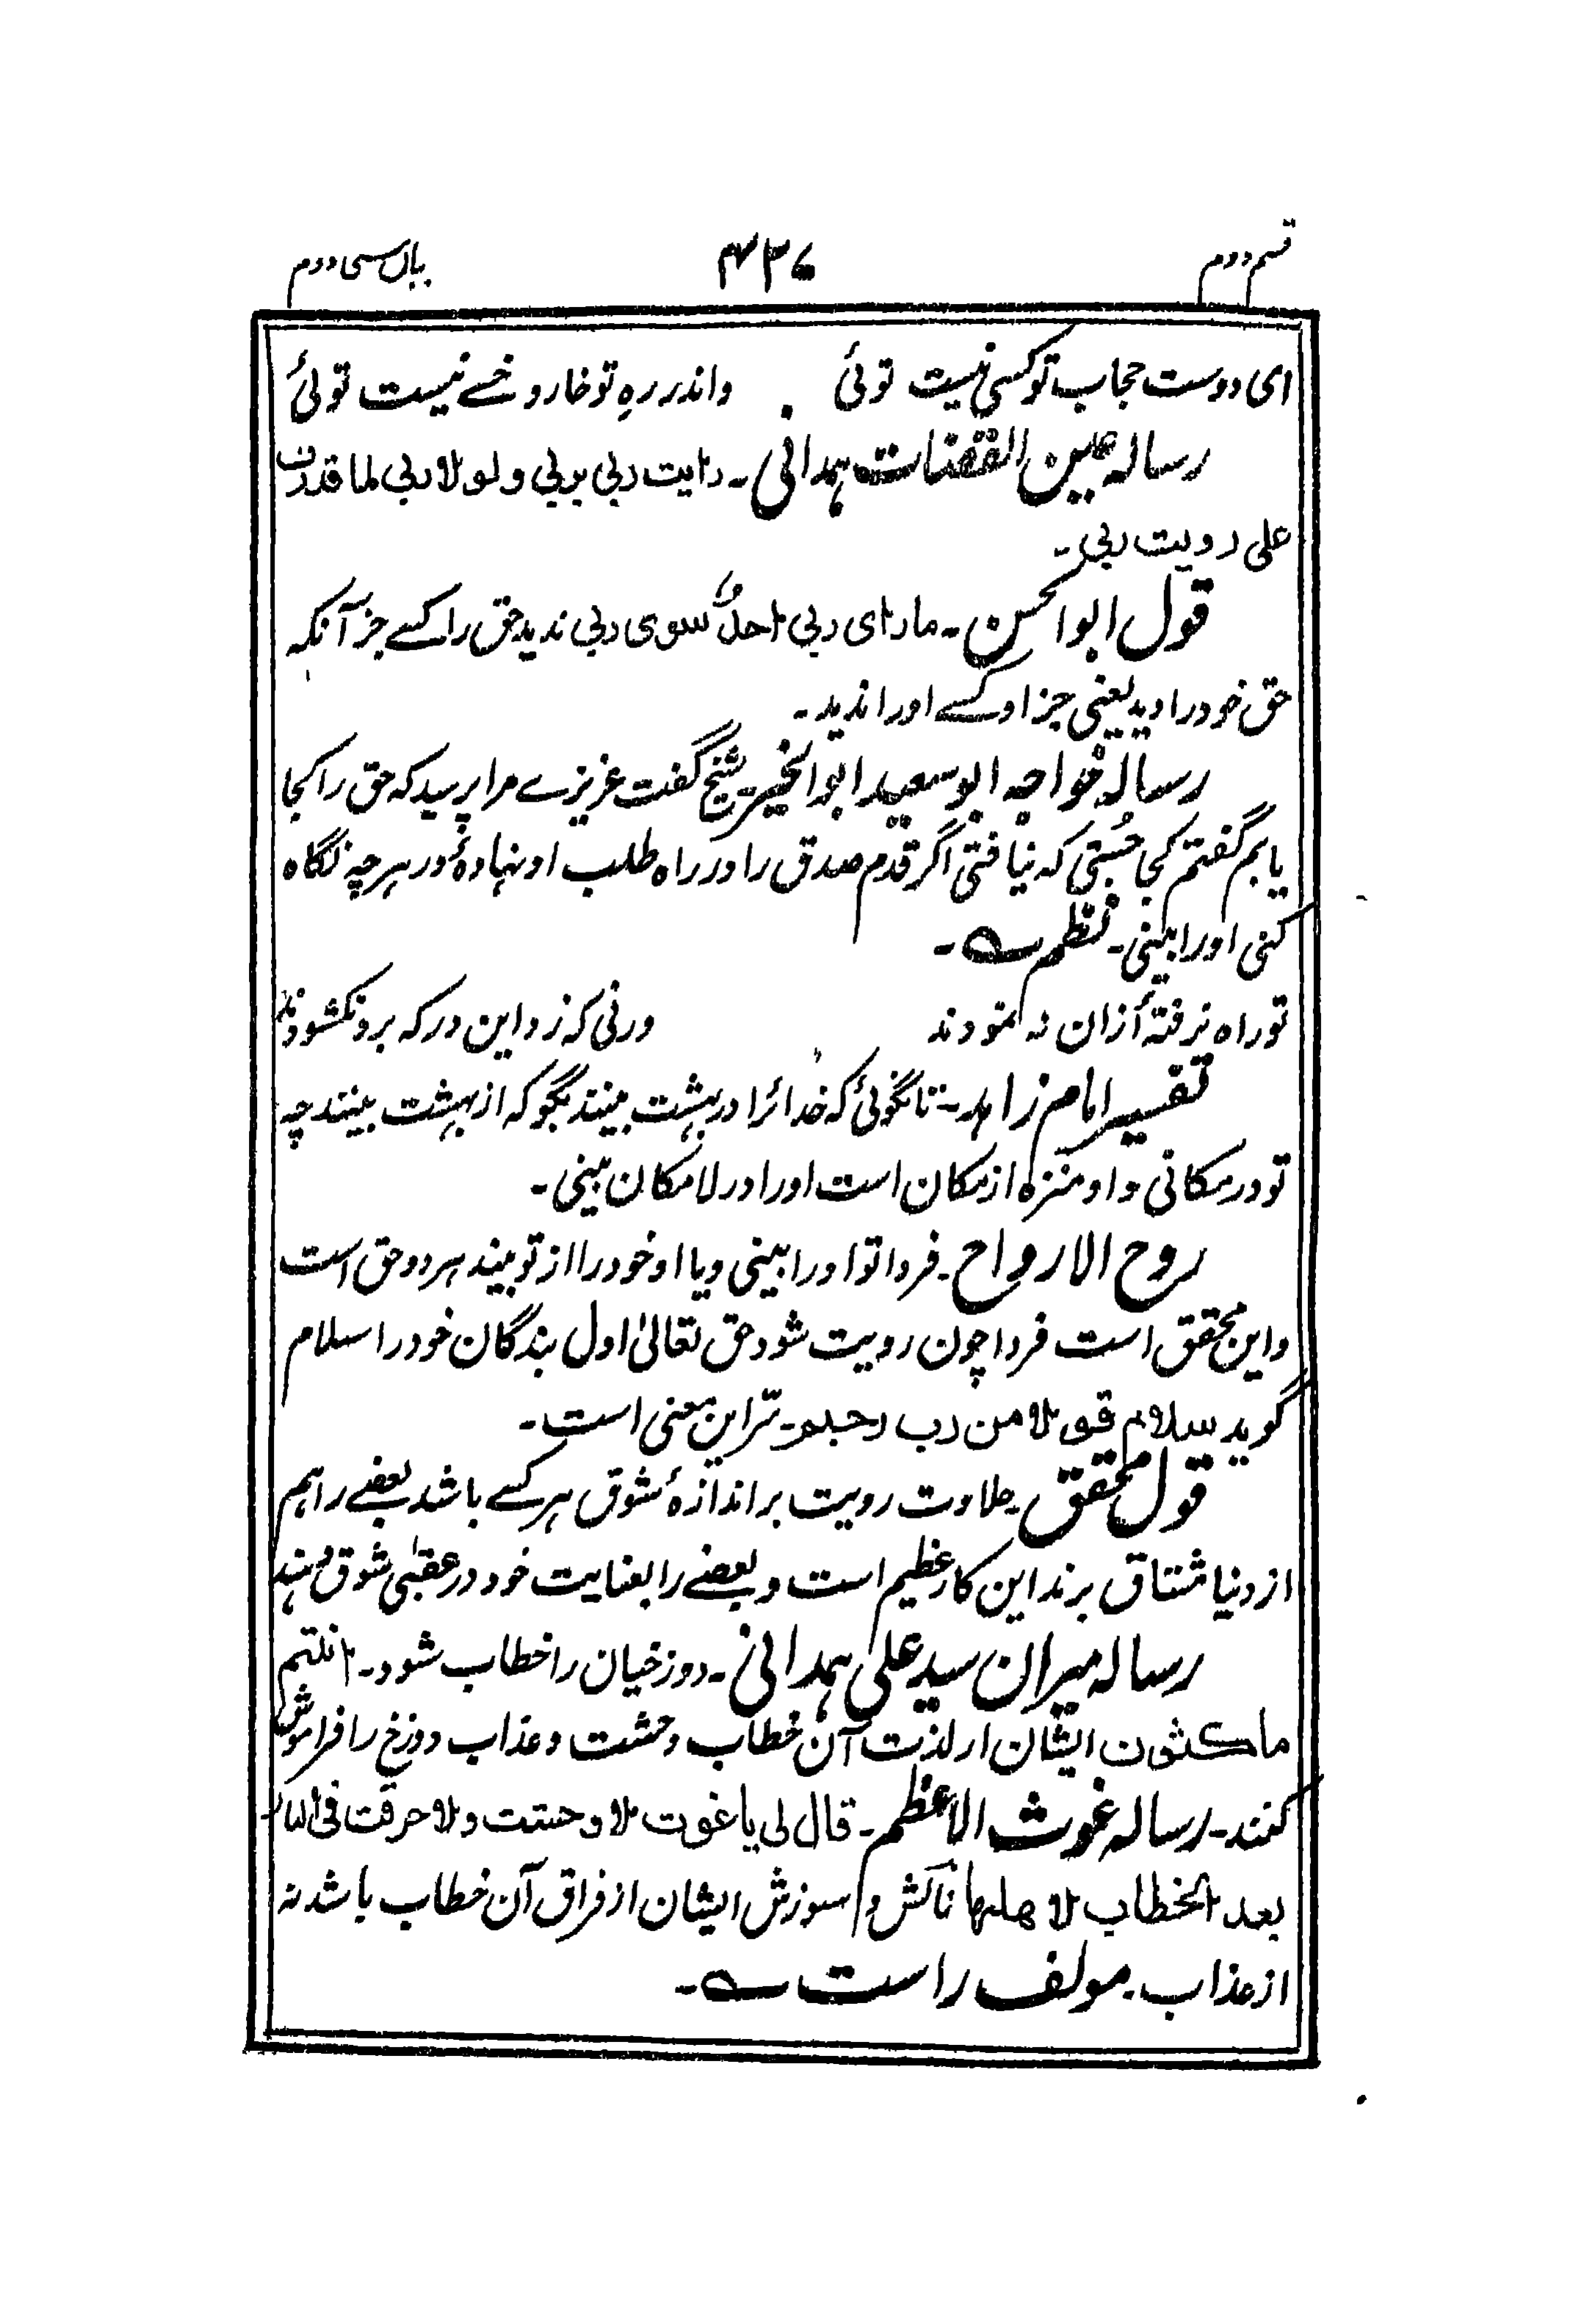 قسم دوم ۴۳۷ بیان سی دوم
ای دوست حجاب تو کسی نیست توئی واندر رهِ تو خار و خسے نیست توئی
رساله عین القضات ہمدانی۔ رایت ربی بربی ولولا ربی لما قدرت
علی رویت ربی۔
قول ابوالحسن۔ ما رای ربی احدٌ سوی ربی ندید حق را کسے جز آنکه
حق خود را دید یعنی جز او کسے او را ندید۔
رساله خواجه ابو سعید ابوالخیر۔ شیخ گفت عزیزے مرا پرسید که حق را کجا
یابم گفتم کجا جُستی که نیافتی اگر قدم صدق را در راه طلب او نهادهٔ در هرچه نگاه
کنی او را بینی۔ نظم ؎۔
تو راه نرفتهٔ ازان نه نمودند ورنی که زد این در که برو نکشودند
تفسیر امام زاہد۔ تا نگوئی که خدائرا در بهشت بینند بگو که از بهشت بینند چه
تو در مکانی و او منزه از مکان است او را در لا مکان بینی۔
روح الارواح۔ فردا تو او را بینی و یا او خود را از تو بیند هر دو حق است
و این محقق است فردا چون رویت شود حق تعالیٰ اول بندگان خود را سلام
گوید سلام قولا من رب رحیم۔ سرّ این معنی است۔
قول محقق۔ حلاوت رویت بر اندازهٔ شوق هر کسے باشد بعضے را هم
از دنیا مشتاق برند این کار عظیم است و بعضے را بعنایت خود در عقبیٰ شوق دهند
رساله میران سید علی ہمدانی۔ دوزخیان را خطاب شود۔ انتم
ماکثون ایشان از لذت آن خطاب وحشت و عذاب دوزخ را فراموش
کنند۔ رساله غوث الاعظم۔ قال لی یا غوث لا وحشت ولا حرقت فی النار
بعد الخطاب لا هلها نالش و سوزش ایشان از فراق آن خطاب باشد نه
از عذاب۔ مولف راست ؎۔